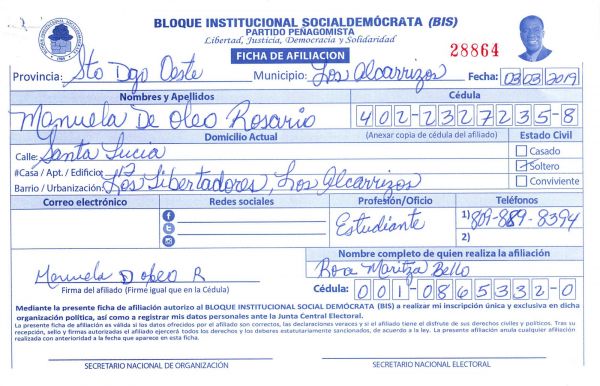 BLOQUE INSTITUCIONAL SOCIALDEMÓCRATA (BIS)
PARTIDO PEÑAGOMISTA
Libertad, Justicia, Democracia y Solidaridad
FICHA DE AFILIACION
28864
Provincia: Sto Dgo Oeste Municipio: Los Alcarrizos Fecha: 03/03/2019
Nombres y Apellidos Cédula
Manuela De Oleo Rosario 402-2327235-8
Domicilio Actual (Anexar copia de cédula del afiliado) Estado Civil
Calle: Santa Lucia Casado
#Casa / Apt. / Edificio: 12 Soltero
Barrio / Urbanización: Los Libertadores, Los Alcarrizos Conviviente
Correo electrónico Redes sociales Profesión/Oficio Teléfonos
Estudiante 1) 809-889-8394
2)
Nombre completo de quien realiza la afiliación
Manuela D oleo R Rosa Maritza Bello
Firma del afiliado (Firme igual que en la Cédula) Cédula: 001-0865332-0
Mediante la presente ficha de afiliación autorizo al BLOQUE INSTITUCIONAL SOCIAL DEMÓCRATA (BIS) a realizar mi inscripción única y exclusiva en dicha
organización política, así como a registrar mis datos personales ante la Junta Central Electoral.
La presente ficha de afiliación es válida si los datos ofrecidos por el afiliado son correctos, las declaraciones veraces y si el afiliado tiene el disfrute de sus derechos civiles y políticos. Tras su
recepción, sello y firmas autorizadas el afiliado ejercerá todos los derechos y los deberes estatutariamente sancionados, de acuerdo a la ley. La presente afiliación anula cualquier afiliación
realizada con anterioridad a la fecha que aparece en esta ficha.
SECRETARIO NACIONAL DE ORGANIZACIÓN SECRETARIO NACIONAL ELECTORAL